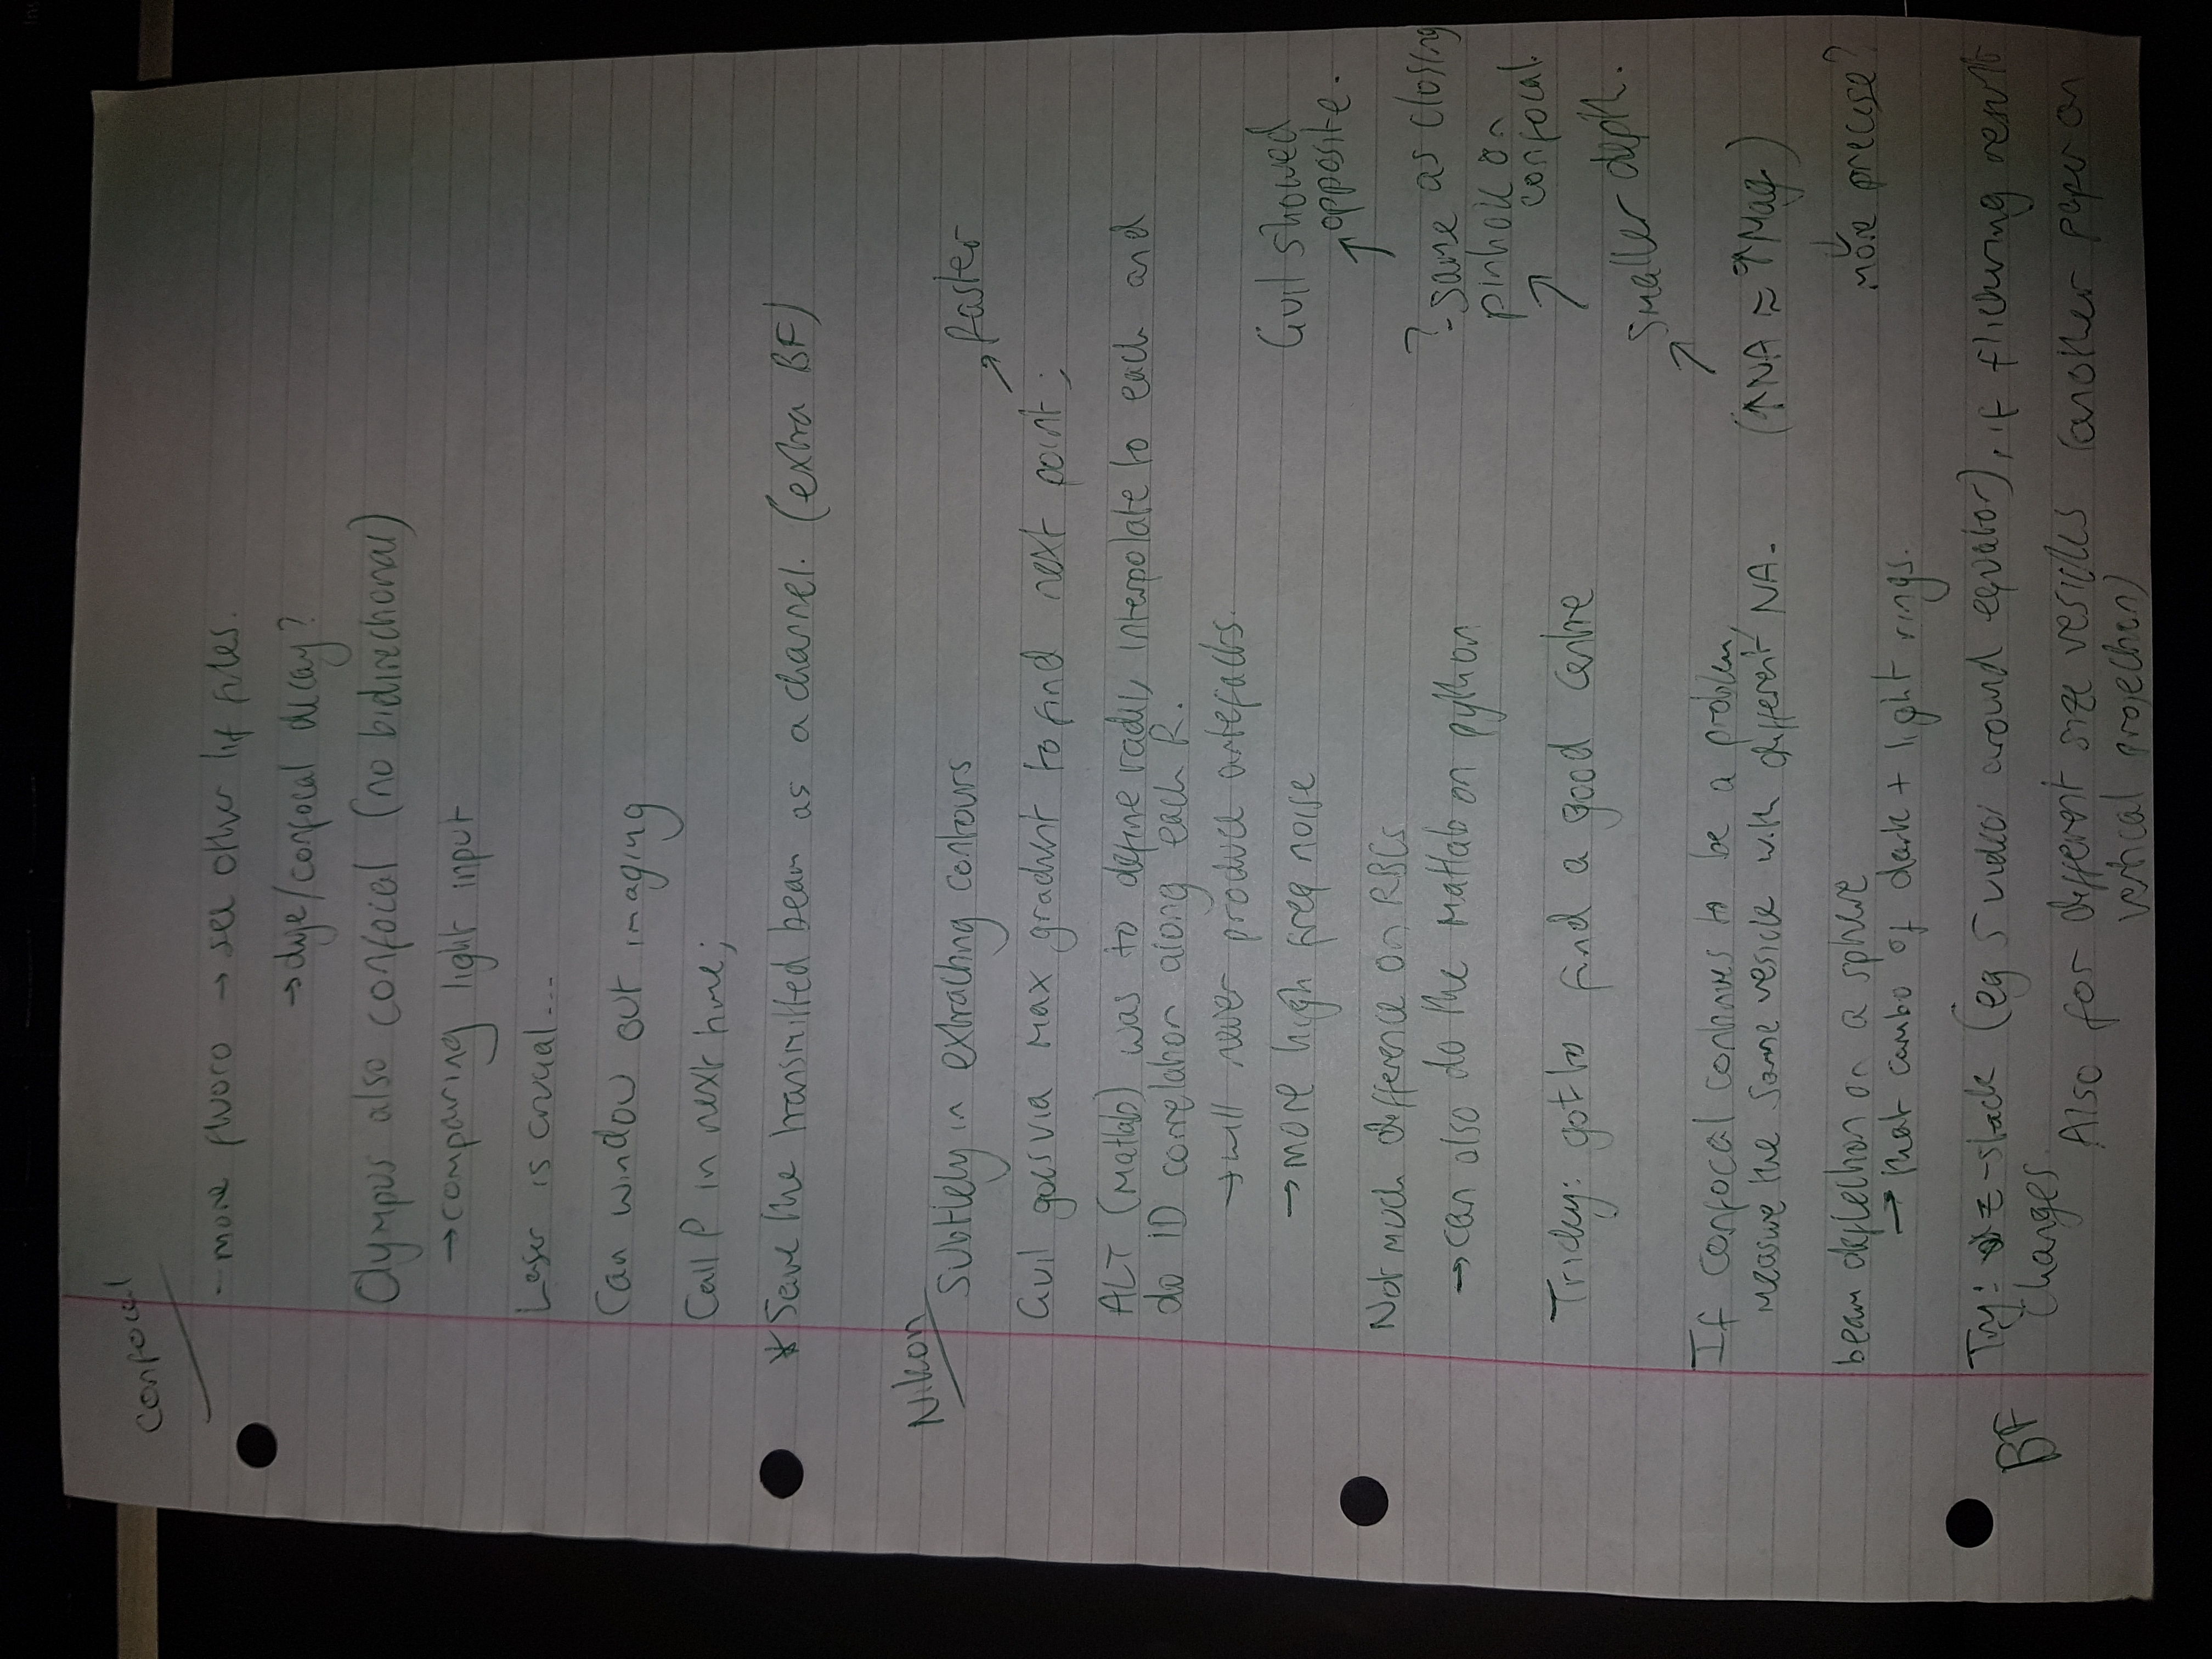 Confocal
- more fluoro → see other lif files.
→ dye/confocal decay?
Olympus also confocal (no bidirectional)
→ comparing light input
Laser is crucial...
Can window out imaging
Call P in next time;
* Save the transmitted beam as a channel. (extra BF)
Nikon
Subtlely in extracting contours
Guil goes via max gradient to find next point;
↗ faster
ALT (Matlab) was to define radii, interpolate to each and
do 1D correlation along each R.
→ will never produce artefacts.
→ more high freq noise
Not much difference on RBCs
→ can also do the Matlab on python
Tricky: got to find a good centre
If confocal continues to be a problem,
measure the same vesicle with different NA.
(↑NA ≈ ↑Mag)
↗ smaller depth.
↗ ? same as closing
pinhole on
confocal.
↗ Guil showed
opposite.
↓
more precise?
beam deflection on a sphere
→ that combo of dark + light rings.
BF
Try: z-stack (eg 5 video around equator), if flickering result
changes.
Also for different size vesicles (another paper on
vertical projection)